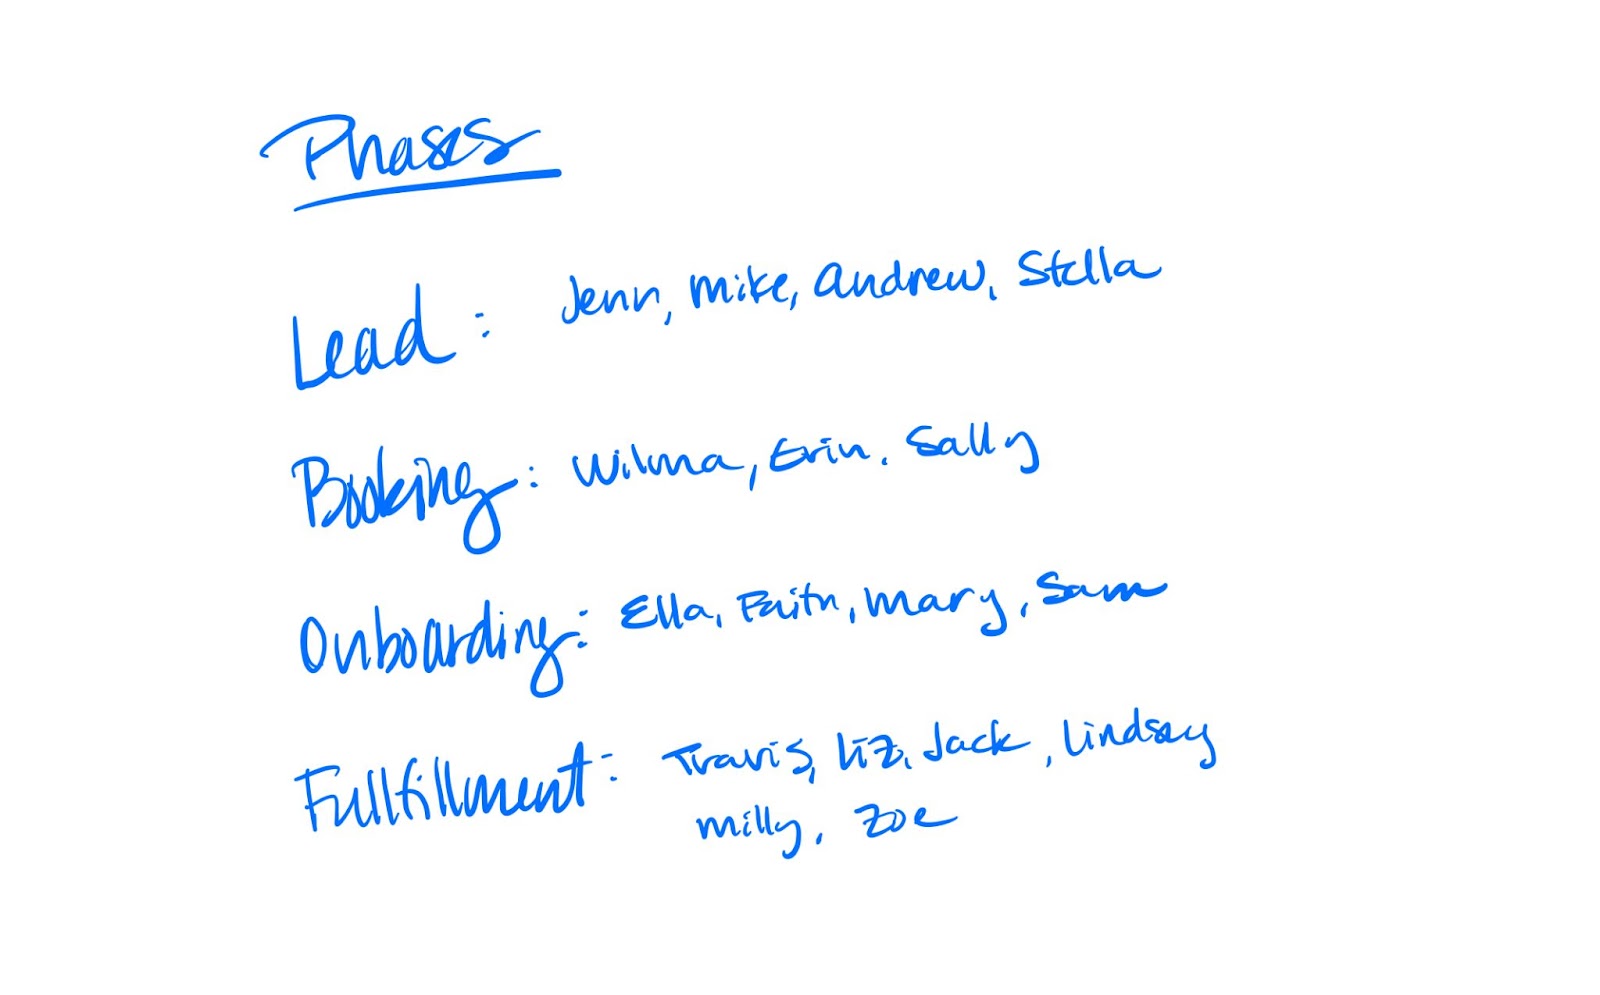 Phases
Lead: Jenn, Mike, Andrew, Stella
Booking: Wilma, Erin, Sally
Onboarding: Ella, Faith, Mary, Sam
Fullfillment: Travis, Liz, Jack, Lindsey
Milly, Zoe